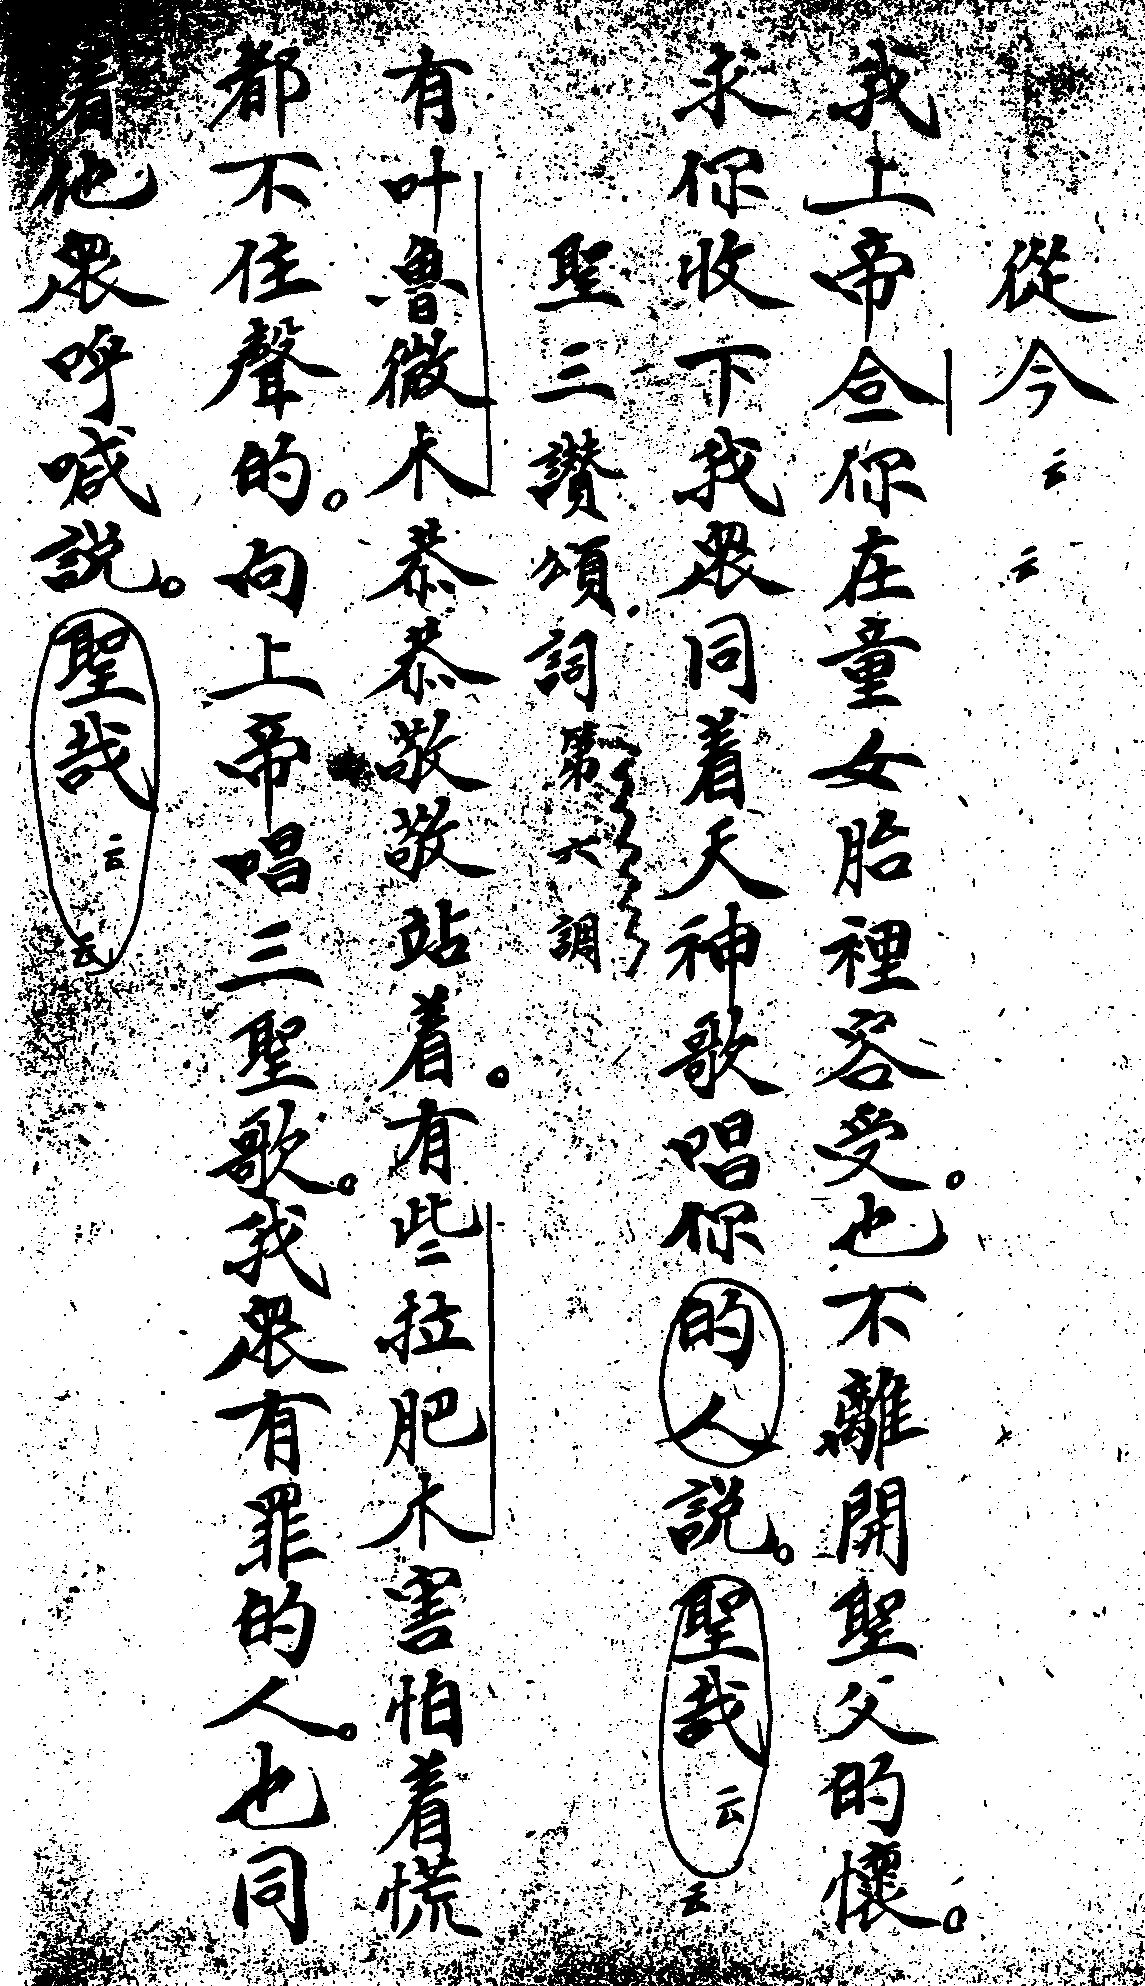 從今云云
我上帝㑒你在童女胎裡容受。也不離開聖父的懷。
求你收下我衆同着天神歌唱你的人説。聖哉云云
聖三讃頌詞第六調
有叶魯微木恭恭敬敬站着。有些拉肥木害怕着慌
都不住聲的。向上帝唱三聖歌。我衆有罪的人。也同
着他衆呼喊説。聖哉云云